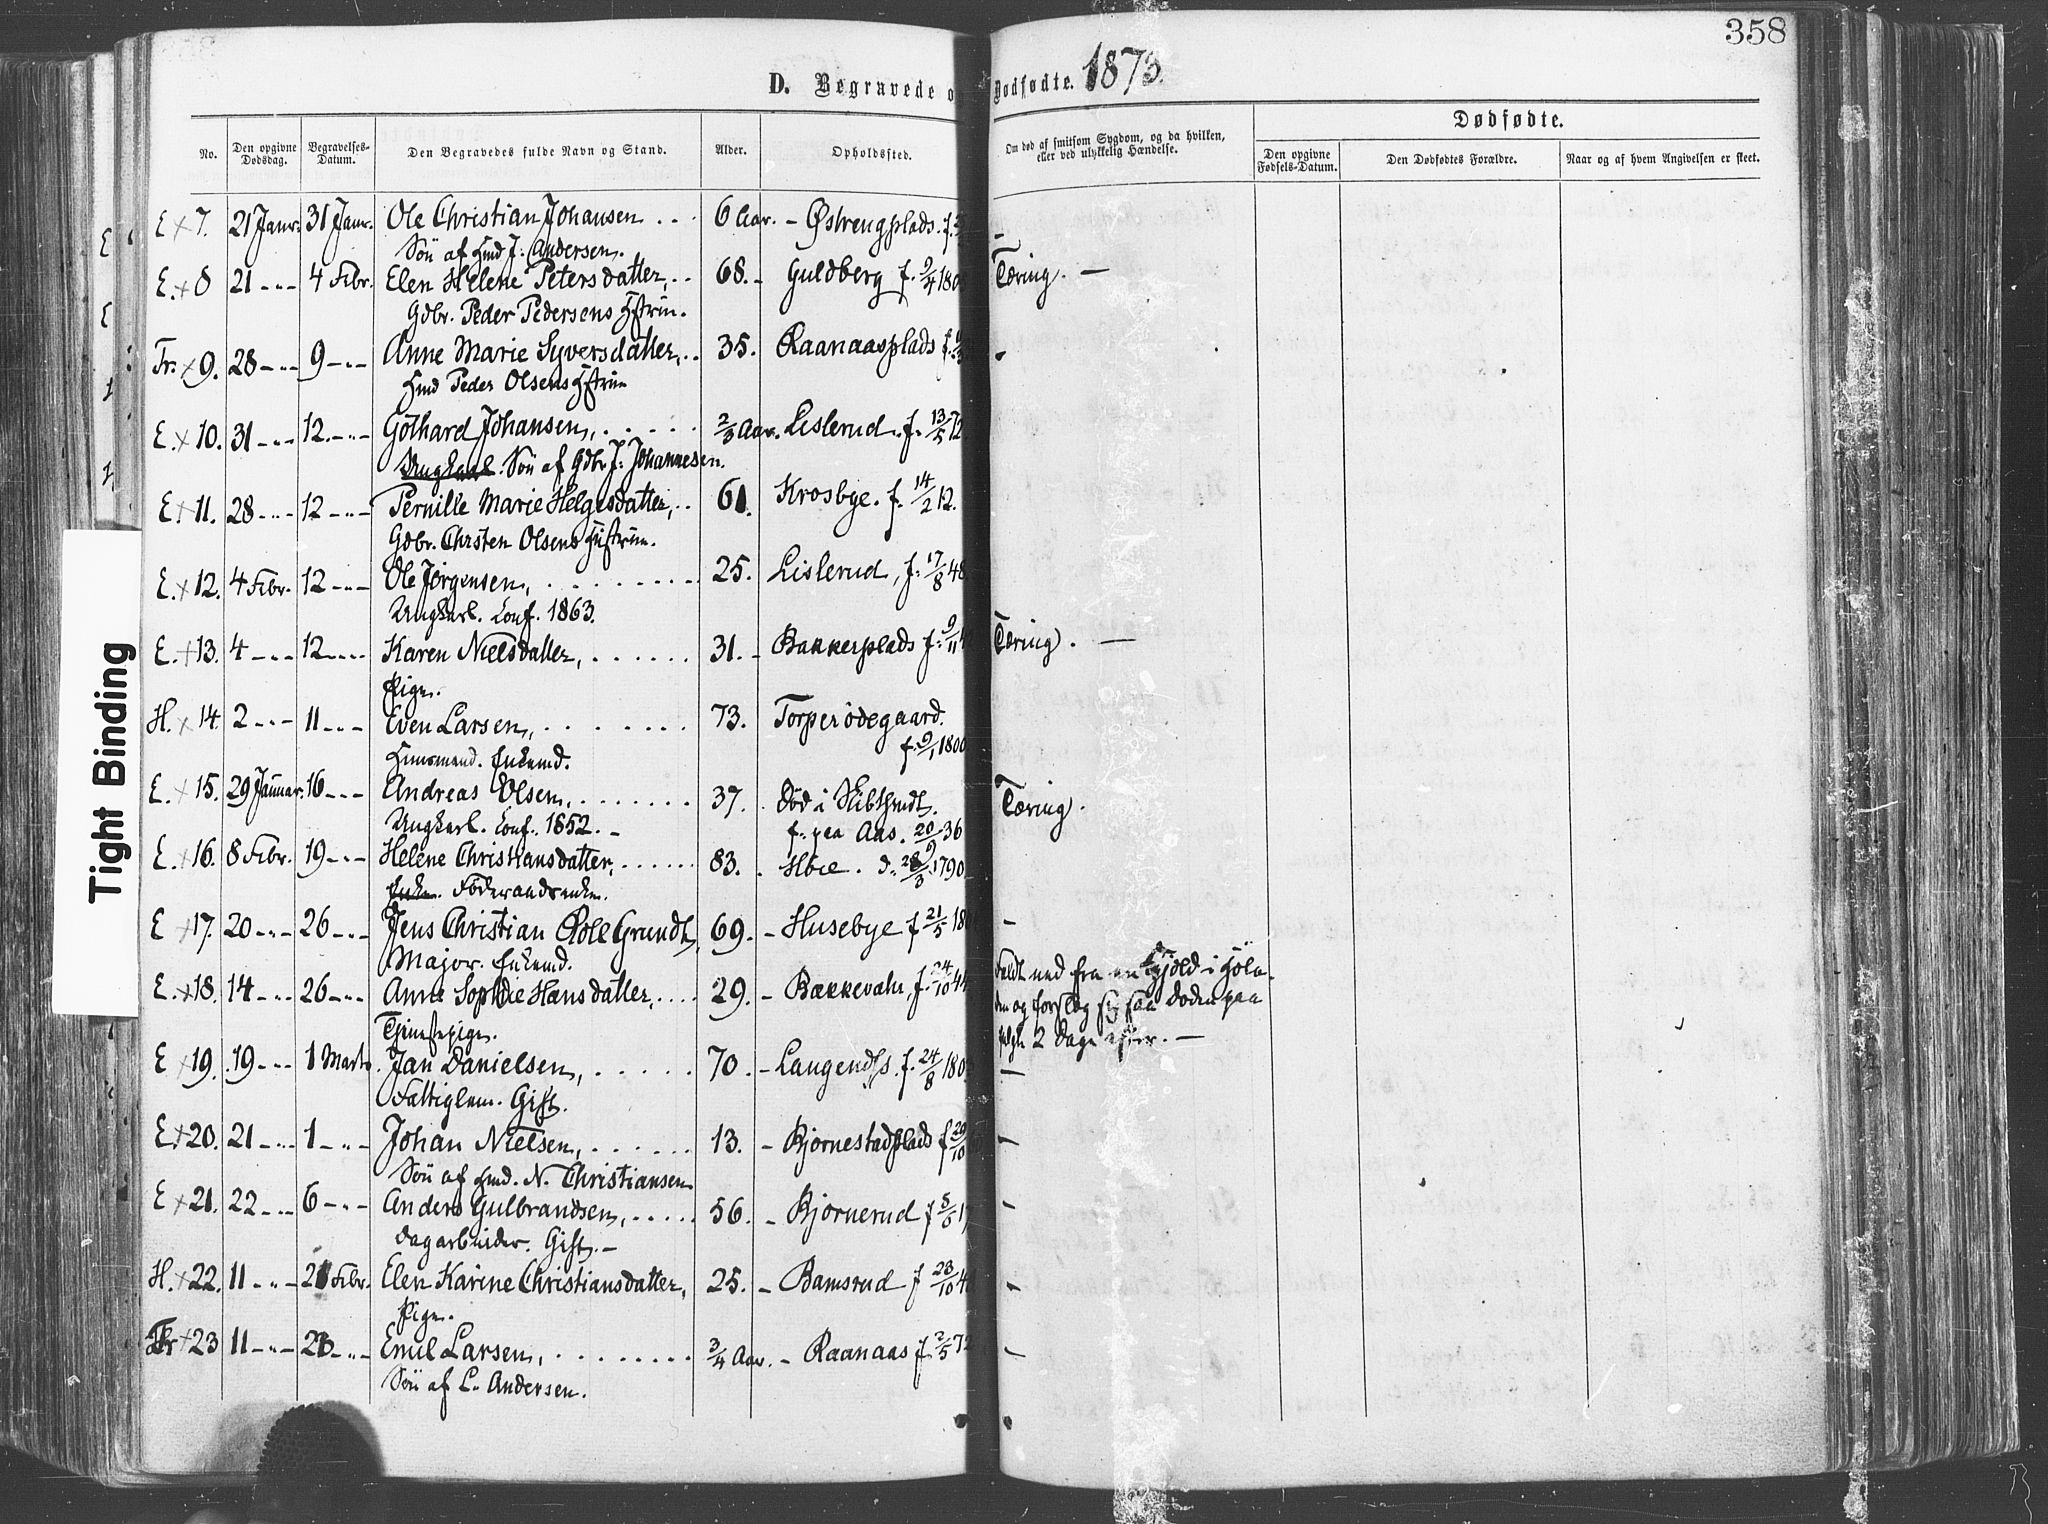 358
D. Begravede o Dødfødte. 1873.
No. Den opgivne Dødsdag. Begravelses-Datum. Den Begravedes fulde Navn og Stand. Alder. Opholdssted. Om død af smitsom Sygdom, og da hvilken, eller ved ulykkelig Hændelse. Dødfødte.
Den opgivne Fødsels-Datum. Den Dødfødtes Forældre. Naar og af hvem Angivelsen er skeet.
E 7. 21 Janr. 31 Janr. Ole Christian Johansen ... 6 Aar. - Østrengplads. f.
Søn af Hmd J. Andersen.
E. 8 21 -"- 4 Febr. Elen Helene Petersdatter, .. 68. - Guldberg f. 9/4 180 Tæring. —
Gdbr. Peder Pedersens Hstrin.
Fr. 9. 28 -"- 9 -"- Anne Marie Syversdatter, .. 35. Raanaasplads f.
Hmd Peder Olsens Hstrin
E. 10. 31 -"- 12. -"- Gothard Johansen, . . . . . 2/3 Aar. Lislerud. f. 13/5 72
Ungkarl. Søn af Gdbr J. Johannesen.
E. 11. 28 -"- 12 -"- Pernille Marie Helgesdatter, .. 61. Krosbye. f. 14/2 12.
Gdbr. Chrsten Olsens Hustrin.
E. 12. 4 Febr. 12 -"- Ole Jørgensen, . . . . . . . . 25. Lislerud, f. 17/8 48
Ungkarl. Conf. 1863.
E. 13. 4 -"- 12 -"- Karen Nielsdatter, . . . . . . 31. - Bakkerplads f. 9/11 Tæring. —
Pige.
H. 14. 2 -"- 11 -"- Even Larsen, . . . . . . . 73. Torperødegaard.
Huusmand. Enkemd. f. 9/1 1800
E. 15. 29 Januar. 16 -"- Andreas Olsen, . . . . . . . 37. død i Tæring.
Ungkarl. Conf. 1852. - f. paa Aas. 20/9 36
E. 16. 8 Febr. 19 -"- Helene Christiansdatter, . . . . . . 83. Hoie. d. 28/3 1790
Enke. Føderaadsenke.
E 17. 20 -"- 26 -"- Jens Christian Grundt, 69. - Husebye f 21/5 180 -
Major. Enkemd.
E. 18. 14 -"- 26 -"- Anne Sophie Hansdatter, .... 29. - Bækkevahr, f. 24/10 44 Faldt ned fra en
Tjenestepige. og forslog sig saa Døden paa
2 Dage efter. —
E 19. 19 -"- 1 Marts. Jan Danielsen, . . . . . 70. - Langends. f. 24/8 180 —
Fattiglem. Gift.
E. 20. 21 -"- 1 -"- Johan Nielsen, . . . . . . 13. - Bjørnestadplads f 29/10 -
Søn af Hmd. N. Christiansen
E 21. 22 -"- 6 -"- Anders Gulbrandsen, ..... 56. - Bjørnerud f 5/ 17 -
Dagarbeider. Gift. -
H. 22. 11 -"- 21 Febr. Elen Karine Christiansdatter, 25. - Bamsrud f 23/10 4 -
Pige.
Fr 23 11 -"- 23 -"- Emil Larsen, . . . . . . . . 3/4 Aar. - Raanaas f. 2/5 72 -
Søn af L. Andersen.
Tight Binding